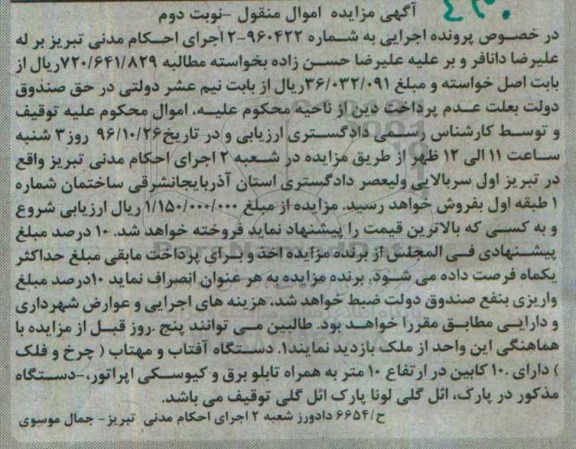 آگهی مزایده اموال منقول -نوبت دوم
در خصوص پرونده اجرایی به شماره ۹۶۰۴۲۲-۲ اجرای احکام مدنی تبریز بر له
علیرضا دانافر و بر علیه علیرضا حسن زاده بخواسته مطالبه ۷۲۰/۶۴۱/۸۲۹ریال از
بابت اصل خواسته و مبلغ ۳۶/۰۳۲/۰۹۱ریال از بابت نیم عشر دولتی در حق صندوق
دولت بعلت عدم پرداخت دین از ناحیه محکوم علیه، اموال محکوم علیه توقیف
و توسط کارشناس رسمی دادگستری ارزیابی و در تاریخ۹۶/۱۰/۲۶ روز۳ شنبه
ساعت ۱۱ الی ۱۲ ظهر از طریق مزایده در شعبه ۲ اجرای احکام مدنی تبریز واقع
در تبریز اول سربالایی ولیعصر دادگستری استان آذربایجانشرقی ساختمان شماره
۱ طبقه اول بفروش خواهد رسید. مزایده از مبلغ ۱/۱۵۰/۰۰۰/۰۰۰ ریال ارزیابی شروع
و به کسی که بالاترین قیمت را پیشنهاد نماید فروخته خواهد شد. ۱۰ درصد مبلغ
پیشنهادی فی المجلس از برنده مزایده اخذ و برای پرداخت مابقی مبلغ حداکثر
یکماه فرصت داده می شود، برنده مزایده به هر عنوان انصراف نماید ۱۰درصد مبلغ
واریزی بنفع صندوق دولت ضبط خواهد شد، هزینه های اجرایی و عوارض شهرداری
و دارایی مطابق مقررا خواهد بود. طالبین می توانند پنج .روز قبل از مزایده با
هماهنگی این واحد از ملک بازدید نمایند۱. دستگاه آفتاب و مهتاب ( چرخ و فلک
) دارای ۱۰۰ کابین در ارتفاع ۱۰ متر به همراه تابلو برق و کیوسکی اپراتور،-دستگاه
مذکور در پارک، ائل گلی لونا پارک ائل گلی توقیف می باشد.
ح/۶۶۵۴ دادورز شعبه ۲ اجرای احکام مدنی تبریز- جمال موسوی